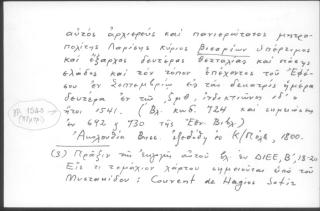 αὐτὸς ἀρχιερεὺς καὶ πανιερώτατος μητρο-
πολίτης Λαρίσης κύριος Βισαρίων ὑπέρτιμος
καὶ ἔξαρχος δευτέρας Θετταλίας καὶ πάσης
ἑλλάδος καὶ τὸν τόπον ἐπέχοντος τοῦ Ἐφέ-
σου ἐν Σεπτεμβρίῳ ἐν τᾶς δεκατρεῖς ἡμέρα
δευτέρα ἐν τῶ ͵ζμθ, ἰνδικτιῶνος ιδ΄
ἤτοι 1541. (Βλ. κωδ. 724 καὶ σημειώσεις
ἐν 692 & 730 τῆς Ἐθν. Βιβλ.)
Ἀκολουθία Βησσ. ἐξεδόθη ἐν Κ/Πόλει, 1800.
(3) Πρᾶξιν τῆς ἐκλογῆς αὐτοῦ βλ. ἐν ΔΙΕΕ, Β΄, 18-20
Εἰς τι τεμάχιον χάρτου σημειοῦται ὑπὸ τοῦ
Μυστακίδου: Couvent de Hagios Sotir
1540